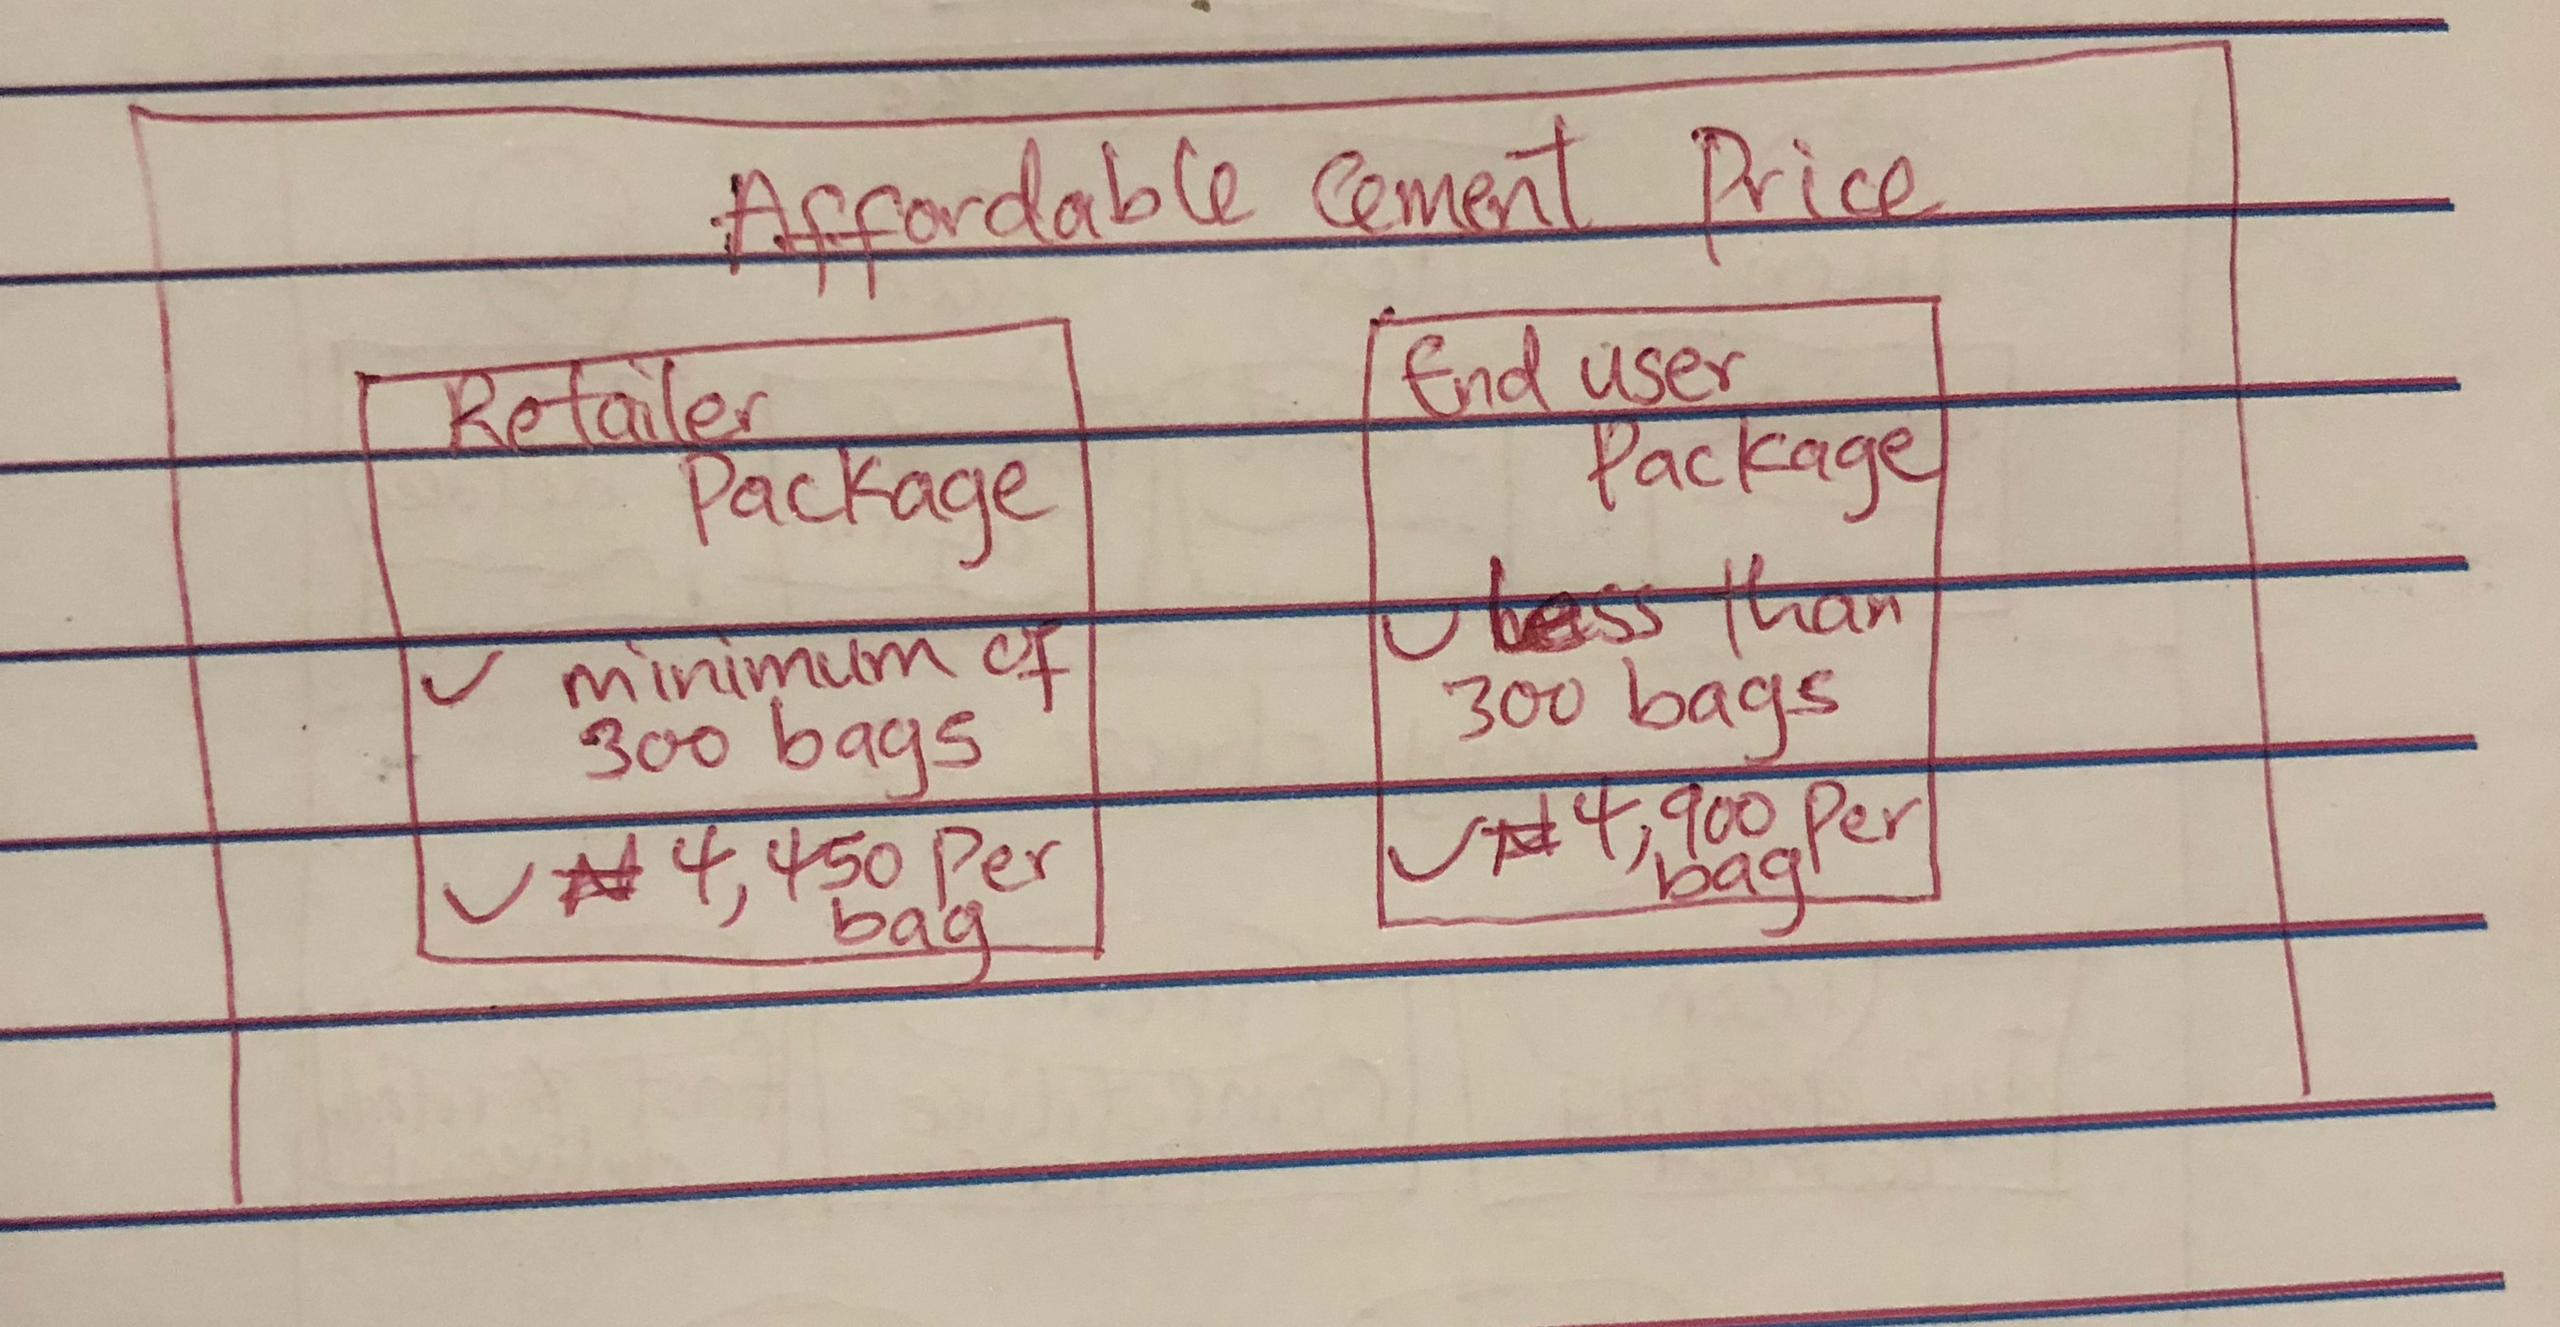 Affordable Cement Price
Retailer
Package
✓ minimum of
300 bags
✓ ₦4,450 Per
bag
End user
Package
✓ less than
300 bags
✓ ₦4,900 Per
bag